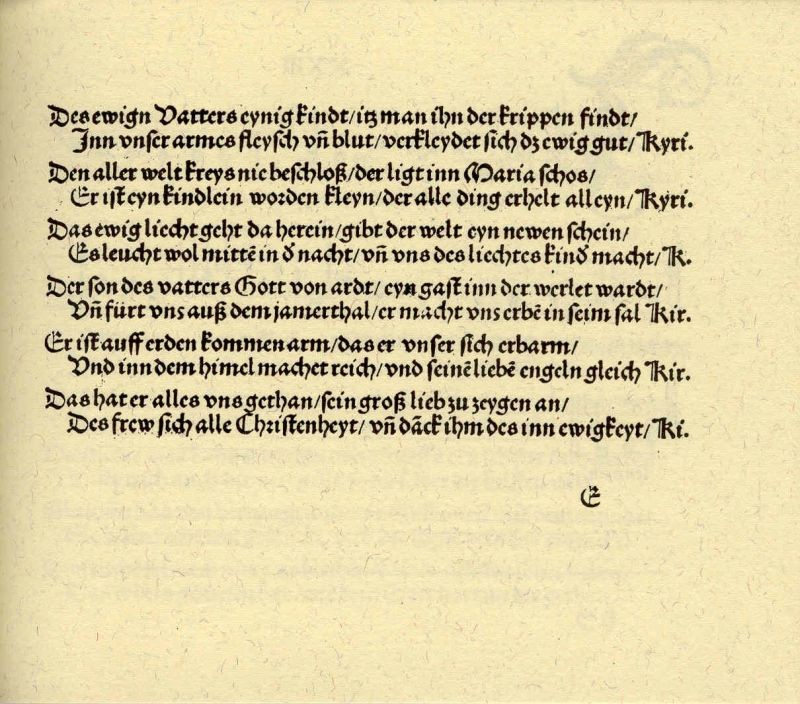 Des ewign Vatters eynig kindt/itz man ihn der krippen findt/
Inn vnser armes fleysch vn̄ blut/verkleydet sich dz ewig gut/Kyri.
Den aller welt kreys nie beschloß/der ligt inn Maria schos/
Er ist eyn kindlein worden kleyn/der alle ding erhelt alleyn/Kyri.
Das ewig liecht geht da herein/gibt der welt eyn newen schein/
Es leucht wol mittē in d̕ nacht/vn̄ vns des liechtes kind̕ macht/K.
Der son des vatters Gott von ardt/eyn gast inn der werlet wardt/
Vn̄ fürt vns auß dem jamerthal/er macht vns erbē in seim sal Kir.
Er ist auff erden kommen arm/das er vnser sich erbarm/
Vnd inn dem himel machet reich/vnd seinē liebē engeln gleich Kir.
Das hat er alles vns gethan/sein groß lieb zu zeygen an/
Des frew sich alle Christenheyt/vn̄ dāck ihm des inn ewigkeyt/Ki.
E